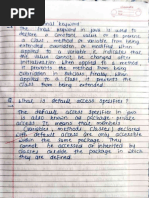 final keyword
The final keyword in java is used to
declare a constant value or to prevent
a class method or variable from being
extended overridden, or modified. When
applied to a variable it indicates that
the value cannot be changed after
initialization. when applied to a method
it prevents the method from being
overridden in subclass finally when
applied to a class it prevents the
class from being extended.
what is default access specifier?
the default access specifier in java
is also known as package private
access. It means that members
(variables, methods, classes) declared
with default access are only accessible
within the same package. They
cannot be accessed or inherited by
classes outside the package in which
they are defined